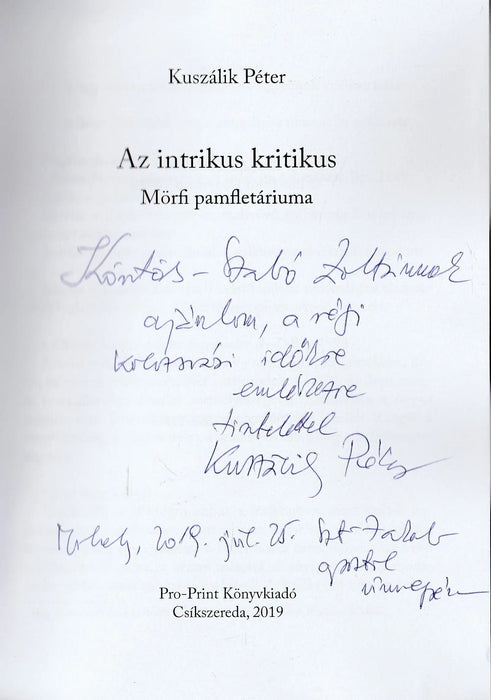 Kuszálik Péter
Az intrikus kritikus
Mörfi pamfletáriuma
Köntös-Szabó Zoltánnak
ajánlom, a régi
kolozsvári időkre
emlékezve
tisztelettel
Kuszálik Péter
Mvhely, 2019. júl. 25. Szt. Jakab
apostol
ünnepén
Pro-Print Könyvkiadó
Csíkszereda, 2019